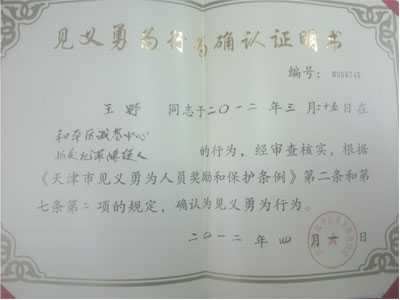 见义勇为行为确认证明书
编号：
王野 同志于二〇一二年三月二十五日在
和平区
的行为，经审查核实，根据
《天津市见义勇为人员奖励和保护条例》第二条和第
七条第二项的规定，确认为见义勇为行为。
二〇一二年四月六日